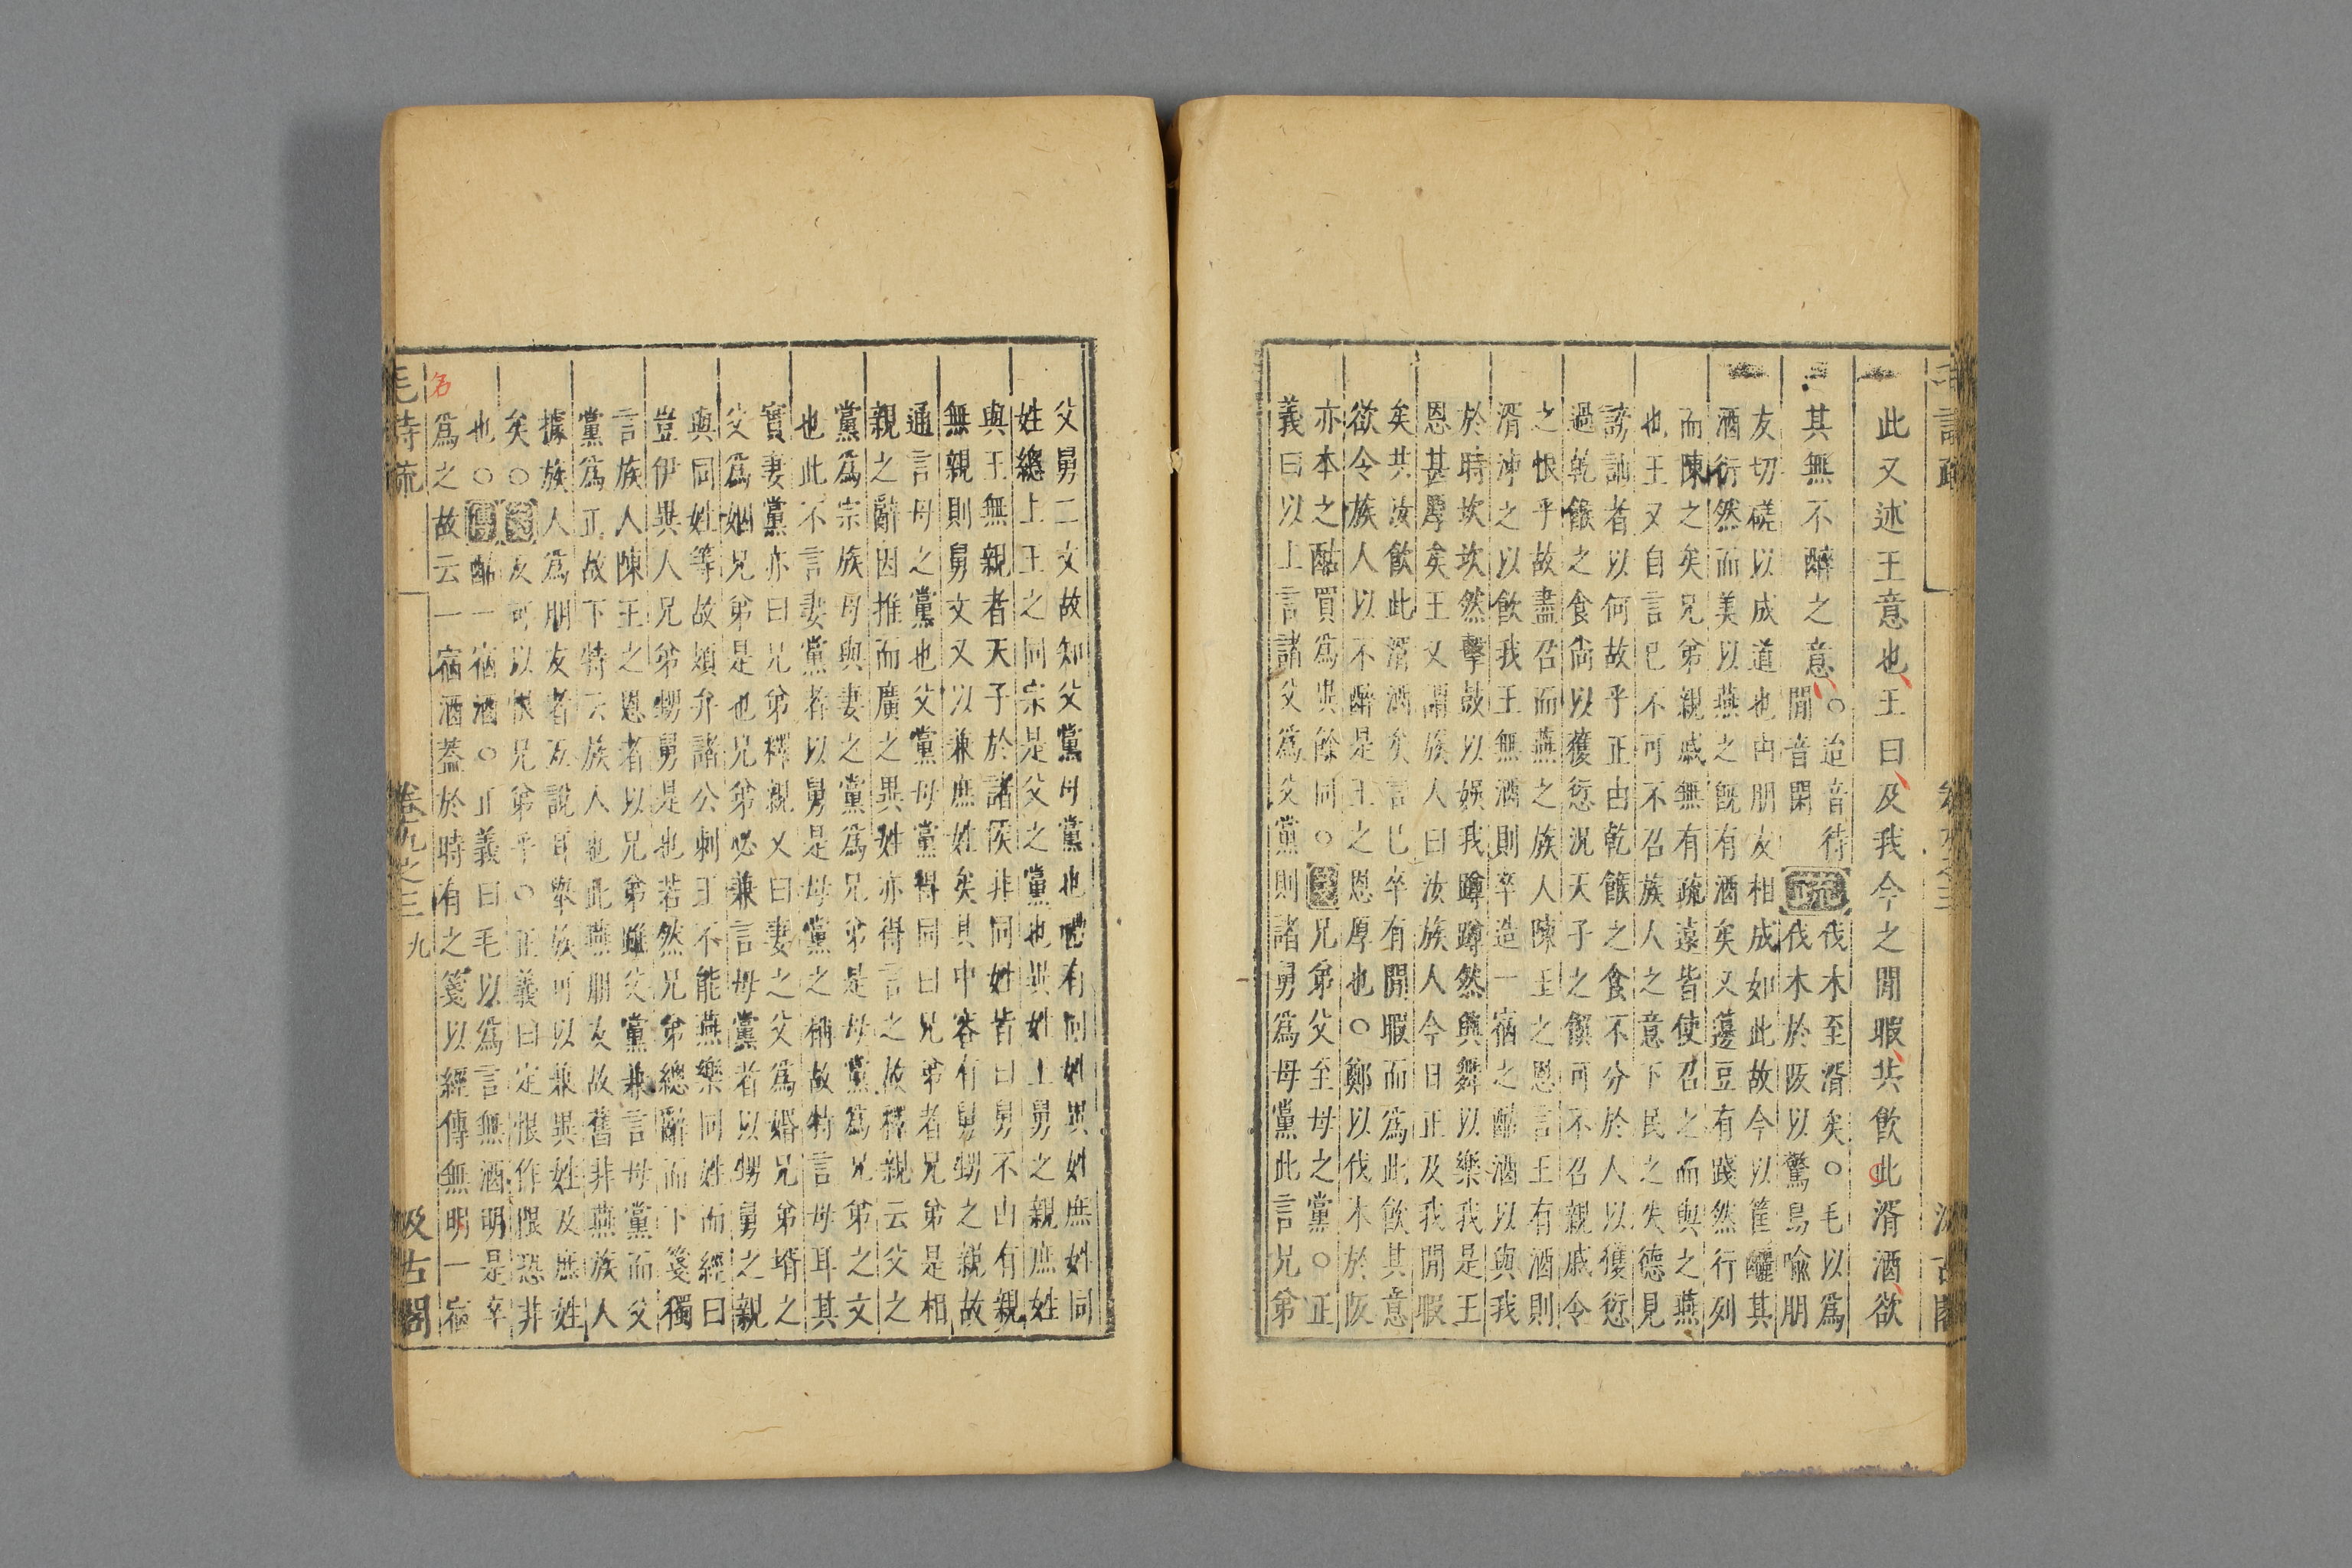 此又述王意也王曰及我今之閒暇共飲此湑酒欲
其無不醉之意
○迨音待
閒音閑
疏
伐木至湑矣○毛以爲
伐木於阪以驚鳥喻朋
友切磋以成道也由朋友相成如此故今以筐釃其
酒衍然而美以燕之旣有酒矣又籩豆有踐然行列
而陳之矣兄弟親戚無有疏遠皆使召之而與之燕
也王又自言巳不可不召族人之意下民之失德見
謗訕者以何故乎正由乾餱之食不分於人以獲愆
過乾餱之食尚以獲愆況天子之饌可不召親戚令
之恨乎故盡召而燕之族人陳王之恩言王有酒則
湑沛之以飲我王無酒則卒造一宿之酤酒以與我
於時坎坎然擊鼓以娛我蹲蹲然興舞以樂我是王
恩甚厚矣王又謂族人曰汝族人今日正及我閒暇
矣共汝飲此湑酒矣言巳卒有閒暇而爲此飲其意
欲令族人以不醉是王之恩厚也○鄭以伐木於阪
亦本之酤買爲異餘同○箋兄弟父至母之黨○正
義曰以上言諸父爲父黨則諸舅爲母黨此言兄弟
父舅二文故知父黨母黨也禮有同姓異姓庶姓同
姓總上王之同宗是父之黨也異姓王舅之親庶姓
與王無親者天子於諸侯非同姓皆曰舅不由有親
無親則舅文又以兼庶姓矣其中容有舅甥之親故
通言母之黨也父黨母黨得同曰兄弟者兄弟是相
親之辭因推而廣之異姓亦得言之故釋親云父之
黨爲宗族母與妻之黨爲兄弟是母黨爲兄弟之文
也此不言妻黨者以舅是母黨之稱故特言母耳其
實妻黨亦曰兄弟釋親又曰妻之父爲婚兄弟壻之
父爲姻兄弟是也兄弟必兼言母黨者以甥舅之親
與同姓等故頍弁諸公刺王不能燕樂同姓而經曰
豈伊異人兄弟甥舅是也若然兄弟總辭而下箋獨
言族人陳王之恩者以兄弟雖父黨兼言母黨而父
黨爲正故下特云族人也此燕朋友故舊非燕族人
據族人爲朋友者互說耳舉族可以兼異姓及庶姓
矣○箋友可以恨兄弟乎○正義曰定恨作限恐非
也○傳酤一宿酒○正義曰毛以爲言無酒明是卒
爲之故云一宿酒蓋於時有之箋以經傳無明一宿
名
毛詩疏
卷九之三
九
汲古閣